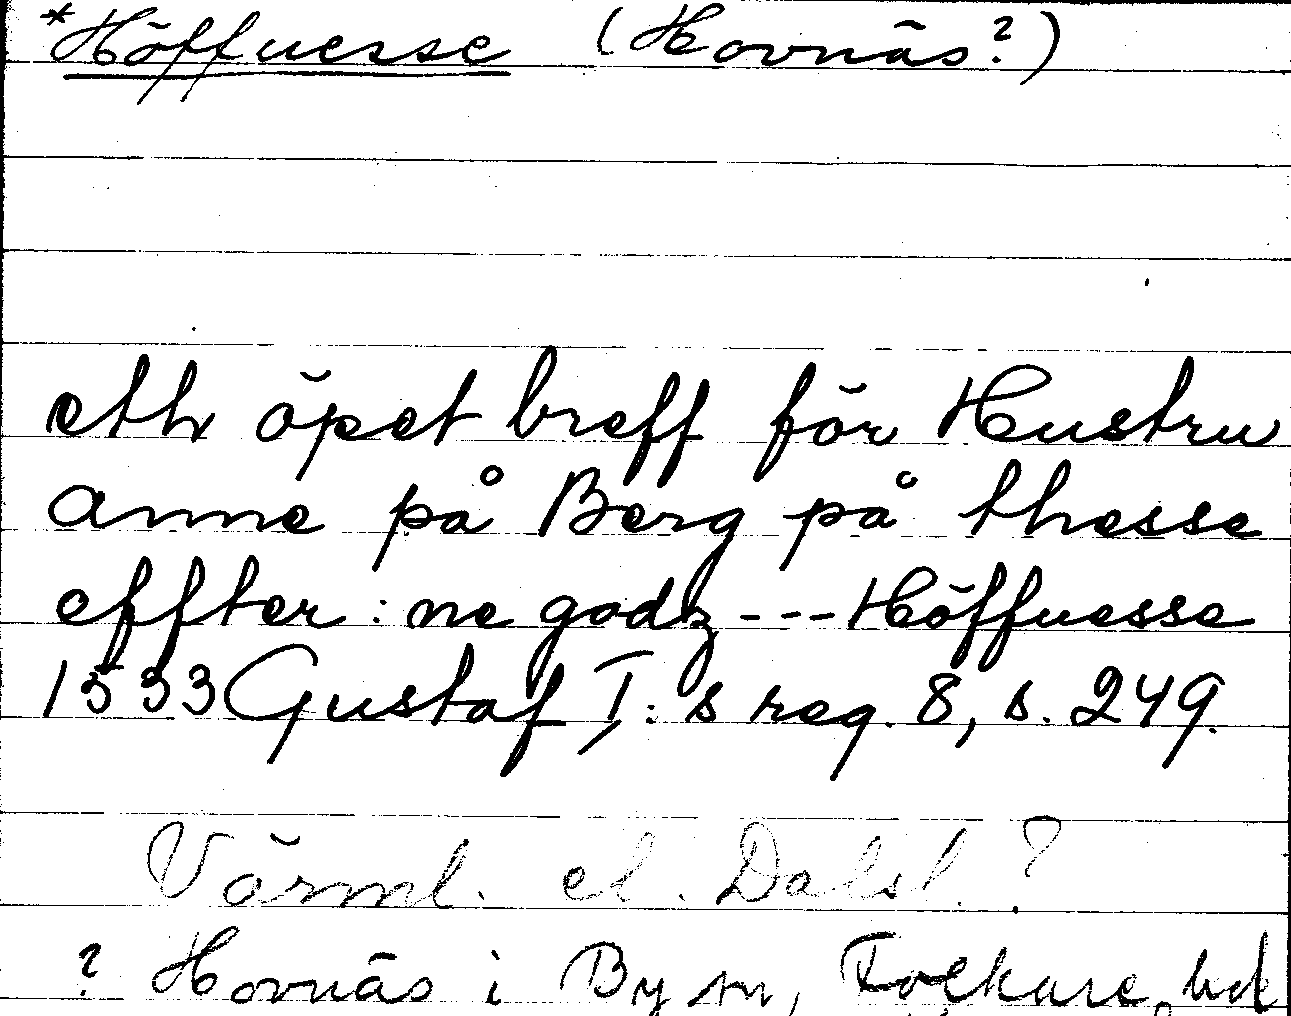 *Höffuesse (Hovnäs?)
eth öpet breff för Hustru
Anne på Berg på thesse
effter: ne godz --- Höffuesse
1533 Gustaf I:s reg. 8, s. 249.
Värml. el. Dalsl. ?
? Hovnäs i By sn,